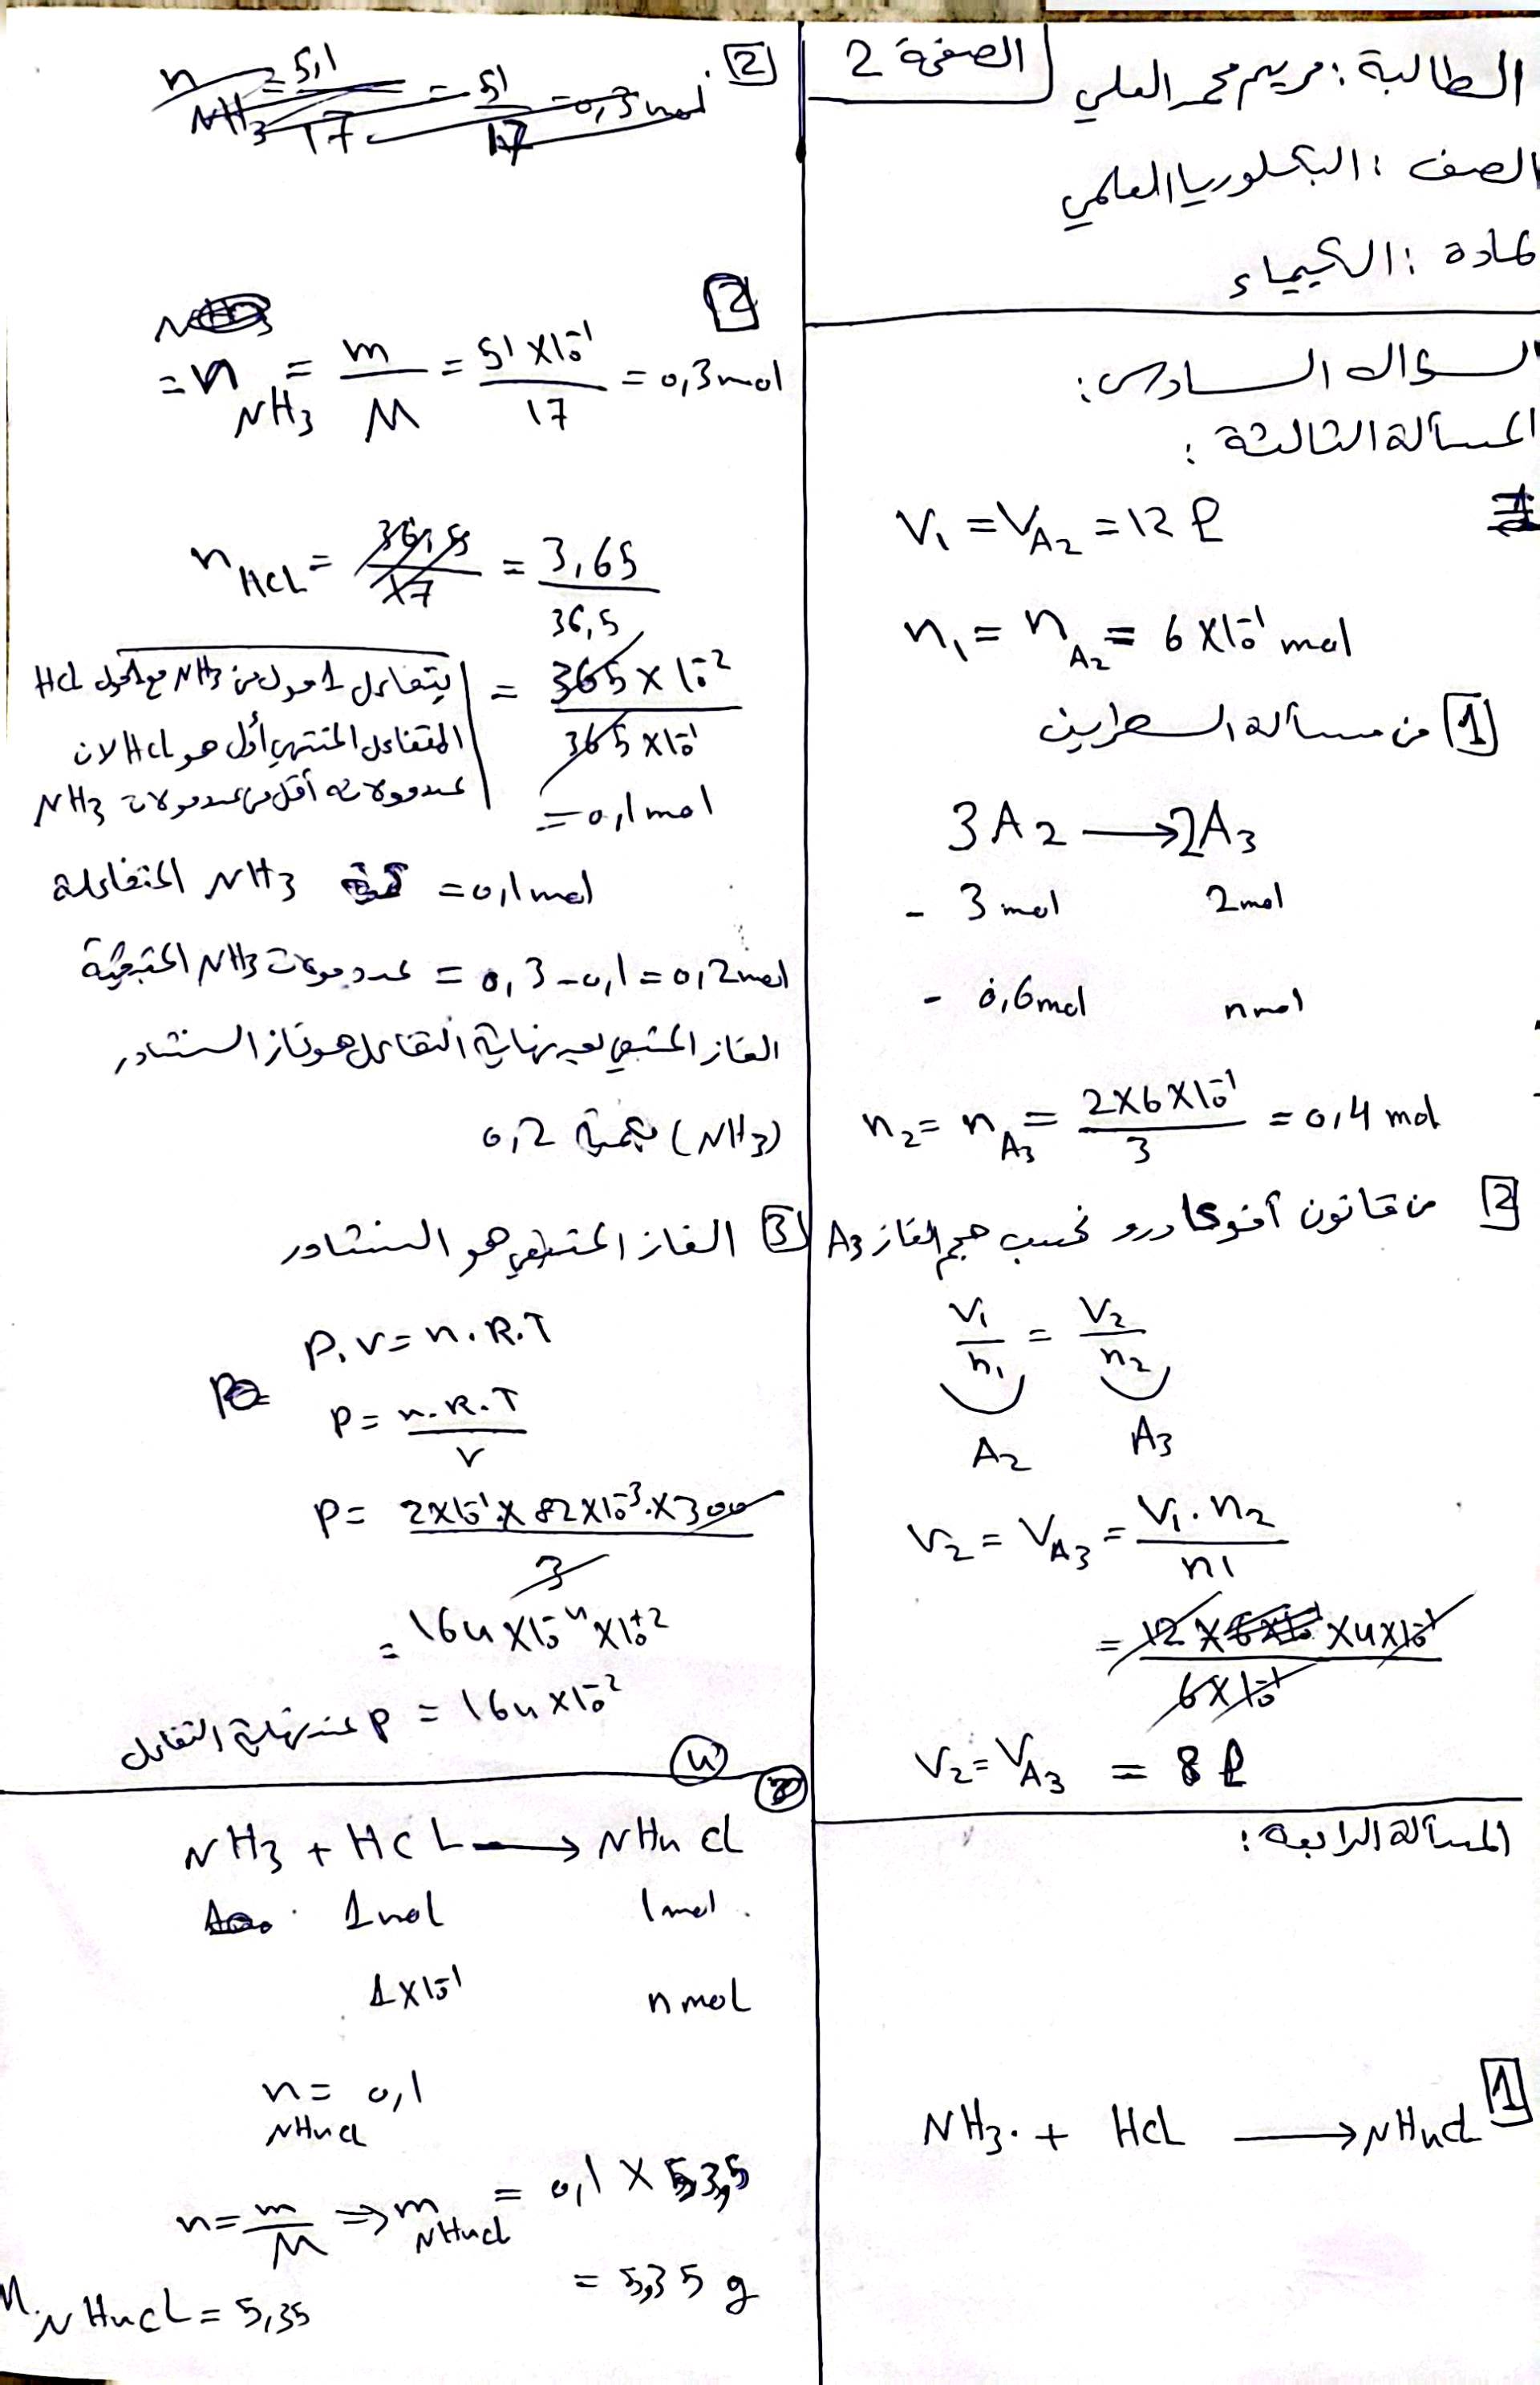 الطالبة : مريم محمد العلي
الصفحة 2
الصف : البكلوريا العلمي
المادة : الكيمياء
السؤال السادس :
المسألة الثالثة :
V₁ = V_A₂ = 12 ℓ
n₁ = n_A₂ = 6 × 10⁻¹ mol
[1] من مسألة السطرين
3 A₂ ⟶ 2A₃
- 3 mol 2 mol
- 0,6 mol n mol
n₂ = n_A₃ = (2 × 6 × 10⁻¹) / 3 = 0,4 mol
[2] من قانون آفوكادرو نحسب حجم الغاز A₃
V₁ / n₁ = V₂ / n₂
A₂ A₃
V₂ = V_A₃ = (V₁ . n₂) / n1
= (12 × 4 × 10⁻¹) / (6 × 10⁻¹)
V₂ = V_A₃ = 8 ℓ
المسألة الرابعة :
[1] NH₃ . + HCL ⟶ NH₄cl
[2]
n NH₃ = 5,1 / 17 = 51 / 17 = 0,3 mol
[2]
= n NH₃ = m / M = (51 × 10⁻¹) / 17 = 0,3 mol
n HCL = 36,5 / 17 = 3,65 / 36,5
= (365 × 10⁻²) / (365 × 10⁻¹)
= 0,1 mol
يتفاعل 1 مول من NH₃ مع 1 مول HCl
المتفاعل المنتهي أول هو HCl لان
عدد مولاته أقل من عدد مولات NH₃
NH₃ المتفاعلة = 0,1 mol
عدد مولات NH₃ المتبقية = 0,3 - 0,1 = 0,2 mol
الغاز المتبقي بعد نهاية التفاعل هو غاز النشادر
(NH₃) بكمية 0,2
[3] الغاز المتبقي هو النشادر
P.V = n.R.T
P = n.R.T / V
P = (2 × 10⁻¹ × 82 × 10⁻³ × 300) / 3
= 164 × 10⁻⁴ × 10⁺²
P عند نهاية التفاعل = 164 × 10⁻²
(4)
NH₃ + HCL ⟶ NH₄ cl
1 mol 1 mol .
1 × 10⁻¹ n mol
n NH₄cl = 0,1
n = m / M ⇒ m NH₄cl = 0,1 × 53,5
= 5,35 g
M NH₄CL = 5,35